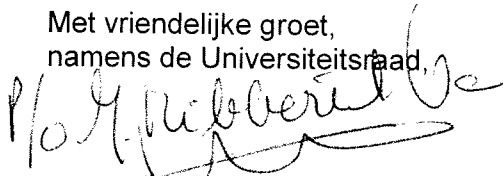 Met vriendelijke groet,
namens de Universiteitsraad,
P/o